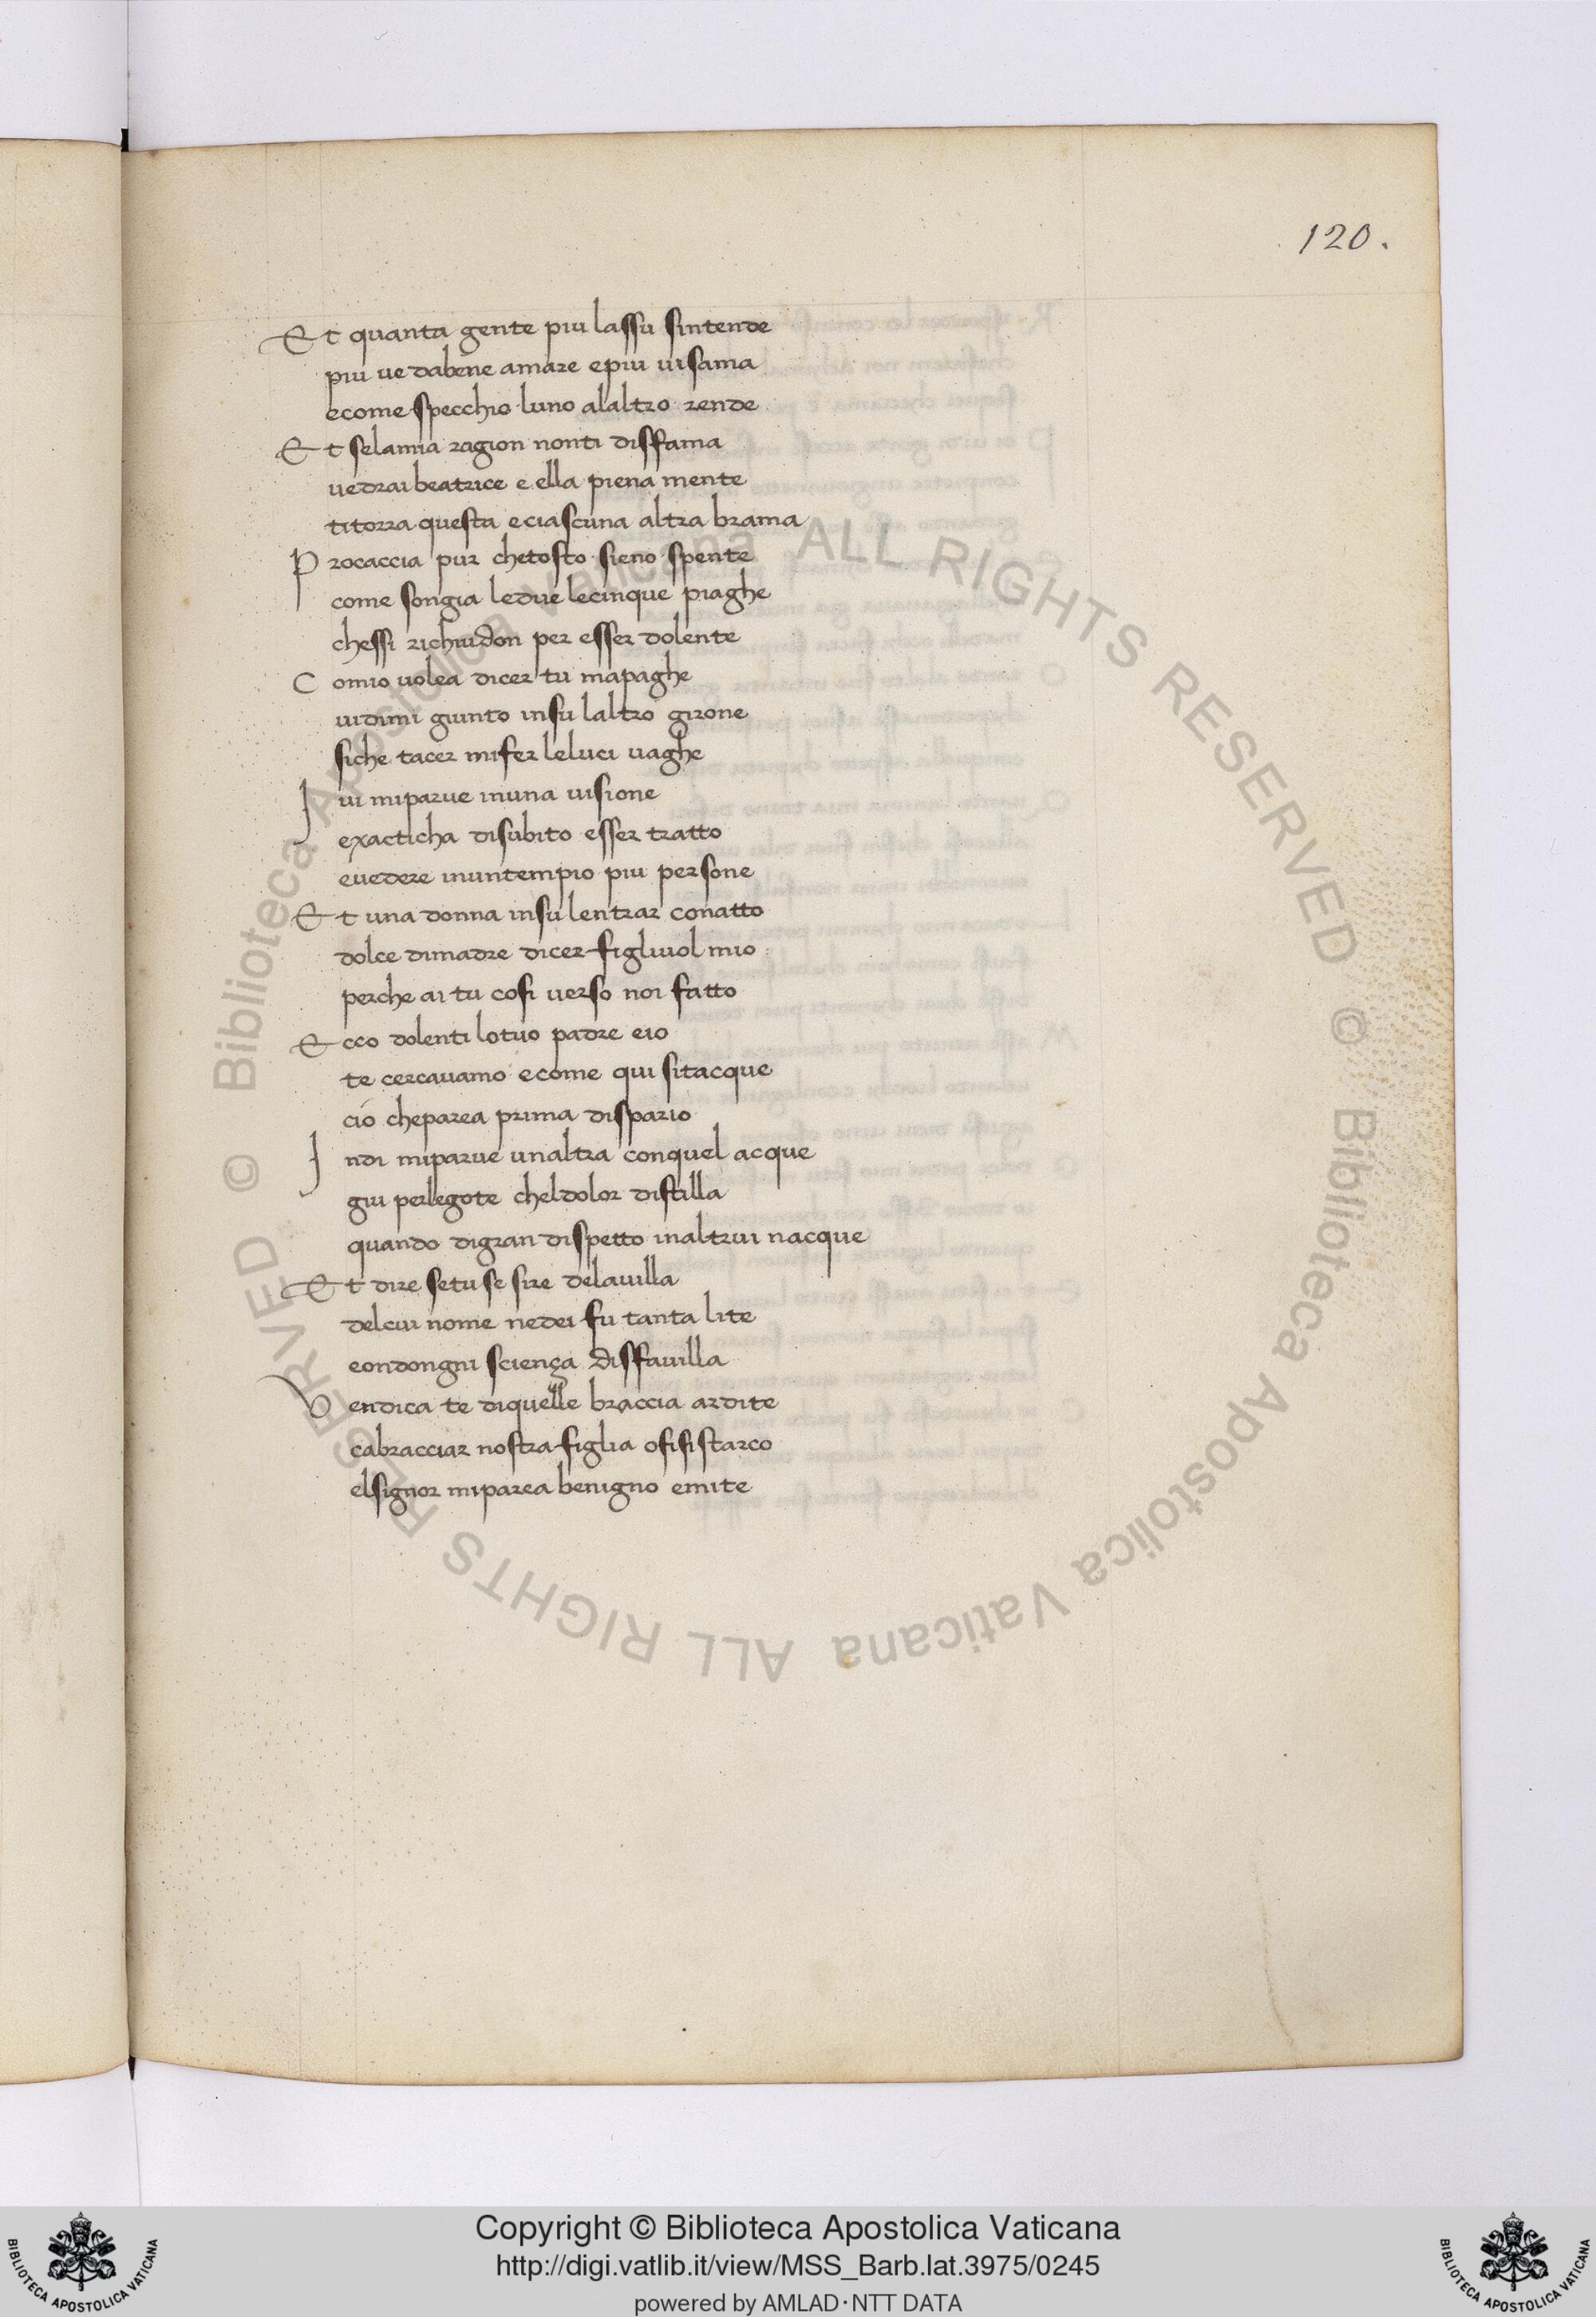 120.
Et quanta gente piu lassu sintende
piu ve dabene amare epiu uisama
ecome specchio luno alaltro rende
Et selamia ragion nonti disfama
uedrai beatrice e ella piena mente
titorra questa eciascuna altra brama
Procaccia pur chetosto sieno spente
come songia ledue lecinque piaghe
chessi richiudon per esser dolente
Comio uolea dicer tu mapaghe
uidimi giunto insu laltro girone
siche tacer mifer leluci uaghe
Iui miparue inuna uisione
exacticha disubito esser tratto
euedere inuntempio piu persone
Et una donna insu lentrar conatto
dolce dimadre dicer figliuol mio
perche ai tu cosi uerso noi fatto
Ecco dolenti lotuo padre eio
te cercauamo ecome qui sitacque
ció cheparea prima dispario
Indi miparue unaltra conquel acque
giu perlegote cheldolor distilla
quando digran dispetto inaltrui nacque
Et dire setu se sire delauilla
delcui nome nedei fu tanta lite
eondongni sciença disfauilla
Vendica te diquelle braccia ardite
cabracciar nostra figlia o fisistarco
elsignor miparea benigno emite
© Biblioteca Apostolica Vaticana ALL RIGHTS RESERVED © Biblioteca Apostolica Vaticana ALL RIGHTS RESERVED
Copyright © Biblioteca Apostolica Vaticana
http://digi.vatlib.it/view/MSS_Barb.lat.3975/0245
powered by AMLAD·NTT DATA
BIBLIOTECA APOSTOLICA VATICANA
BIBLIOTECA APOSTOLICA VATICANA